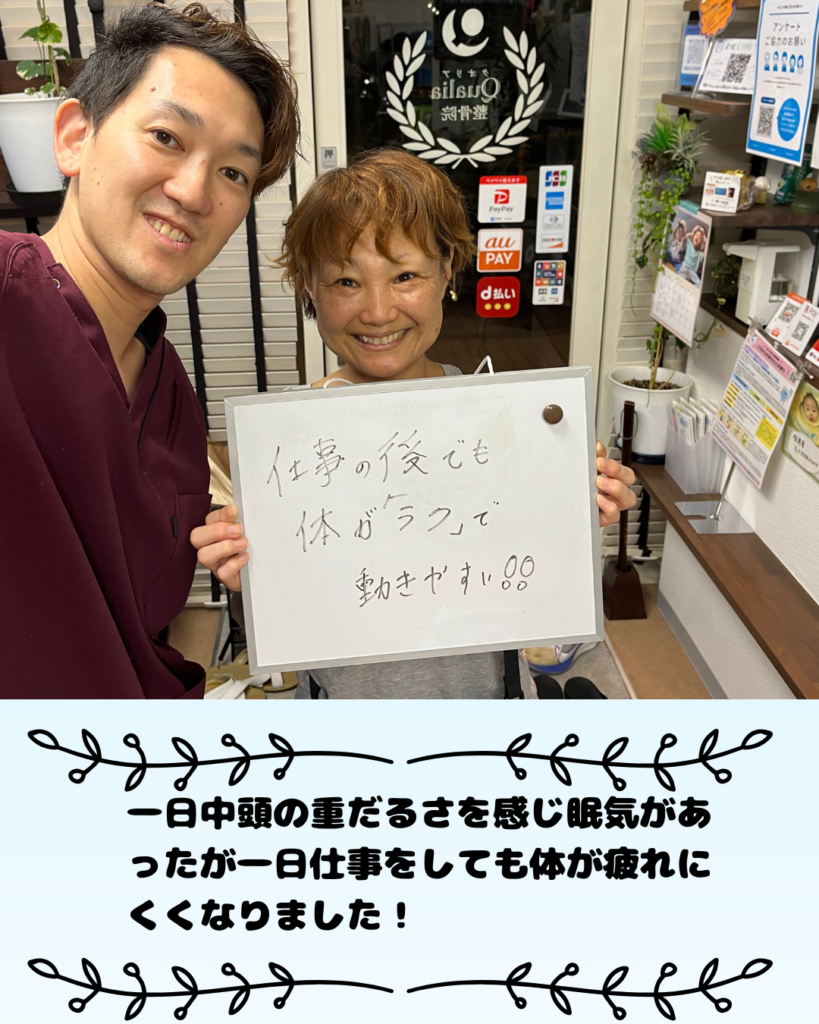 クオリア
Qualia
整骨院
アンケート
ご協力のお願い
PayPay
JCB
au
PAY
d払い
仕事の後でも
体が「ラク」で
動きやすい!!
一日中頭の重だるさを感じ眠気があ
ったが一日仕事をしても体が疲れに
くくなりました！